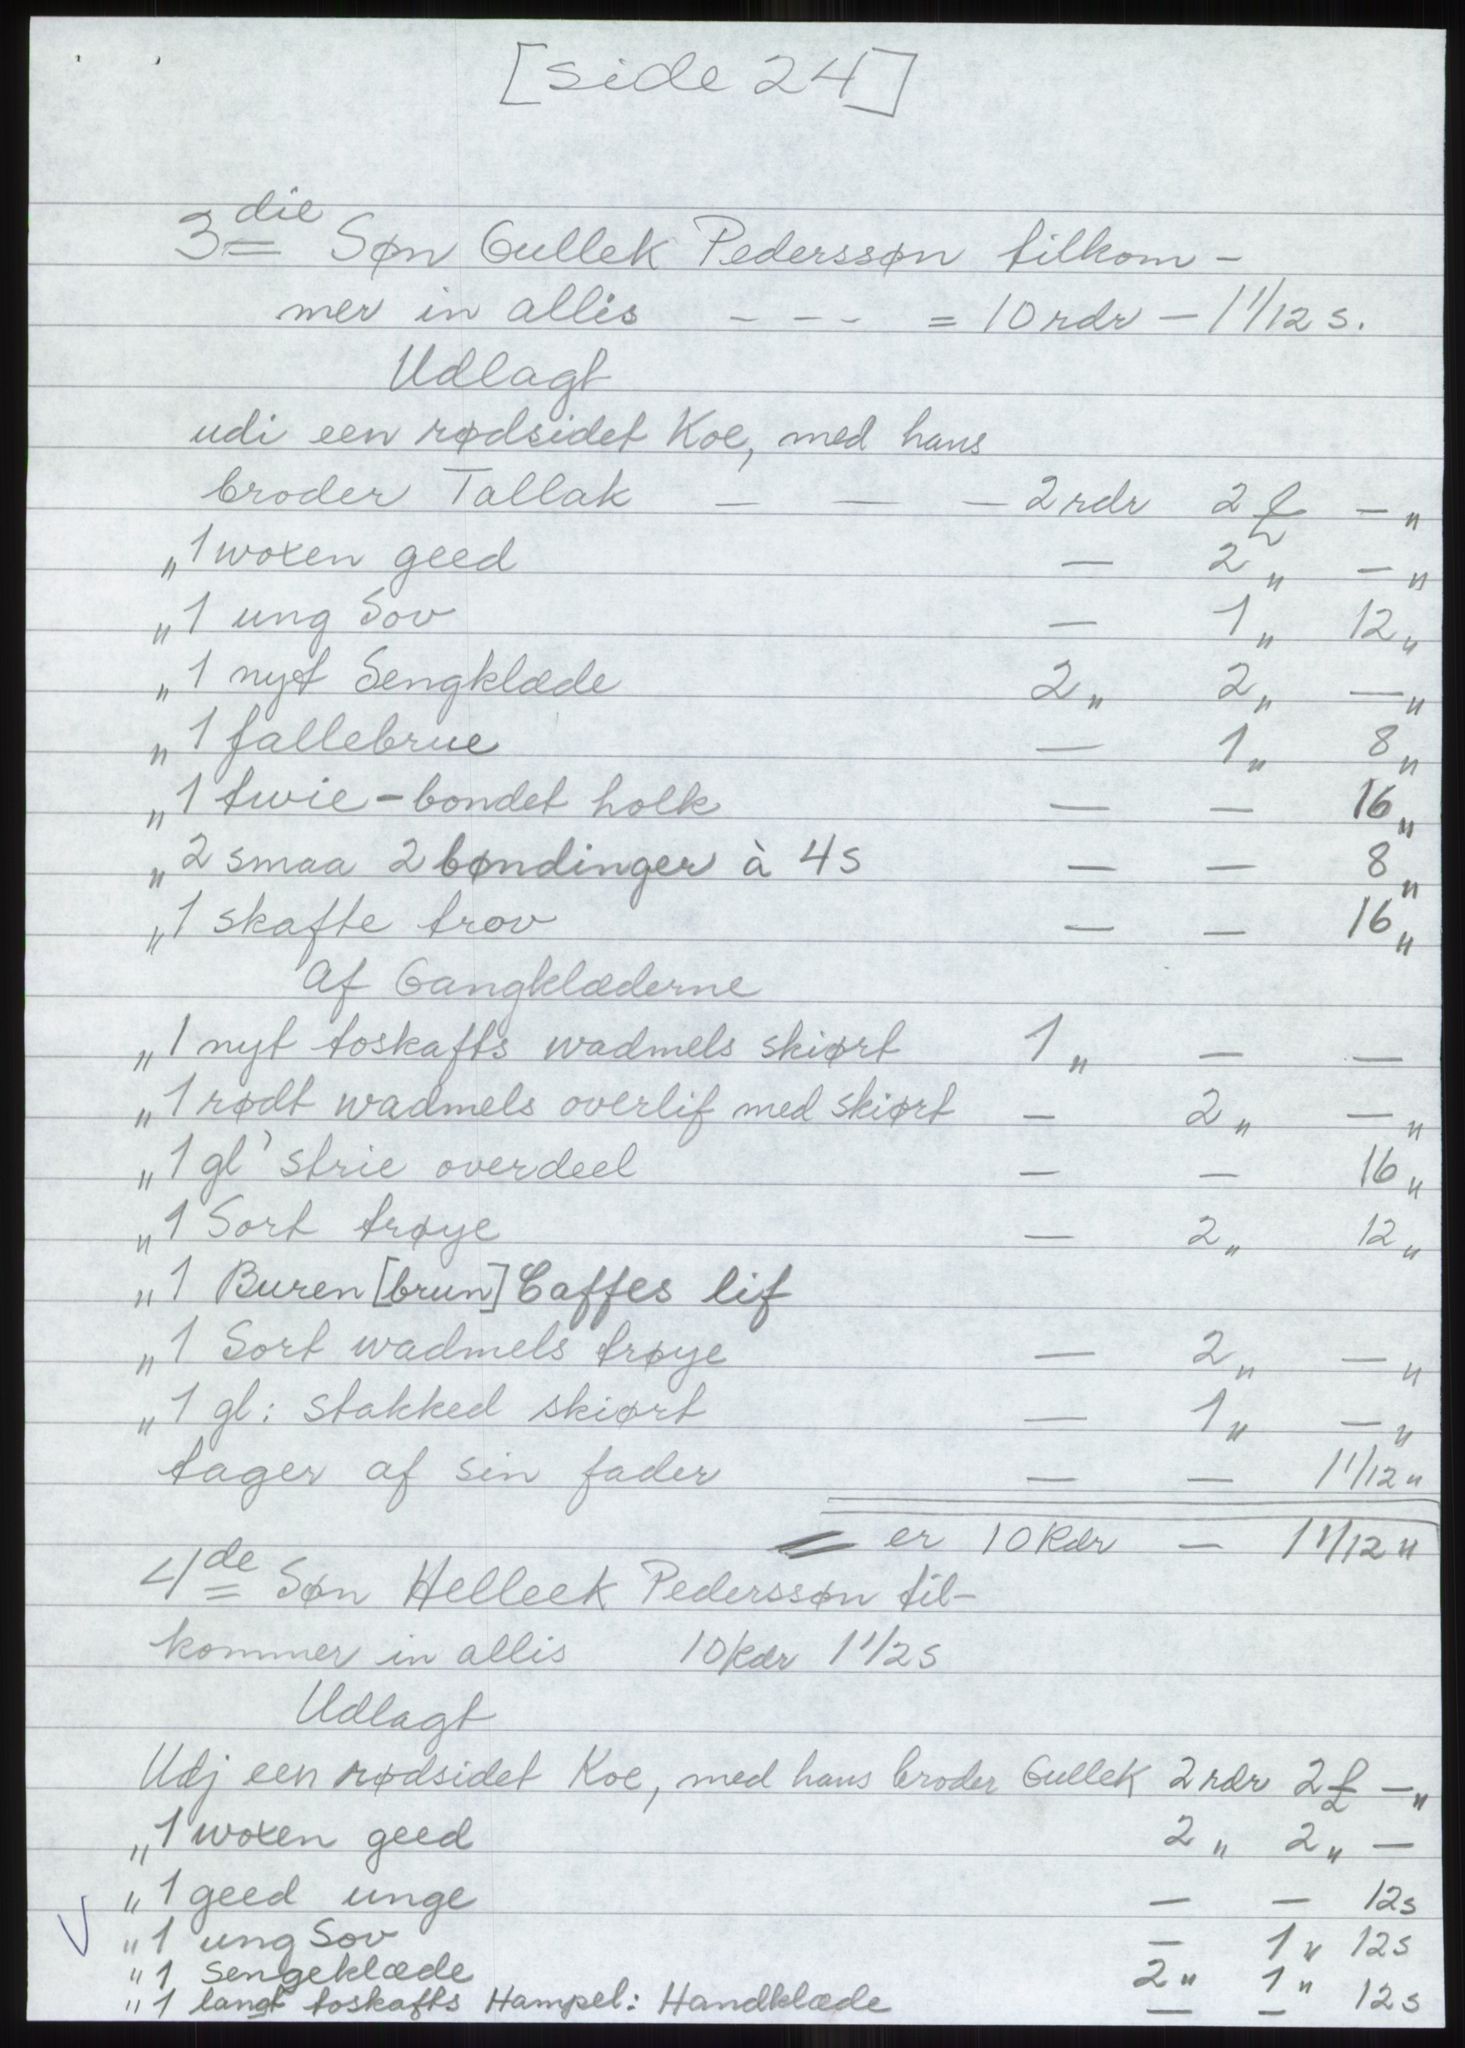 [side 24]
3die Søn Gullek Pederssøn tilkom-
mer in allis - - - = 10 rdr - 1 1/12 s.
Udlagt
udi een rødsidet Koe, med hans
broder Tallak — — — 2 rdr 2 £ — "
" 1 woxen geed — 2 " — "
" 1 ung Sov — 1 " 12 "
" 1 nyt Sengklæde 2 " 2 " — "
" 1 fallebrue — 1 " 8 "
" 1 twie-bondet holk — — 16 "
" 2 smaa 2 bøndinger à 4 s — — 8 "
" 1 skafte trov — — 16 "
Af Gangklæderne
" 1 nyt toskafts wadmels skiørt 1 " — —
" 1 rødt wadmels overlif med skiørt — 2 " — "
" 1 gl' strie overdeel — — 16 "
" 1 Sort trøye — 2 " 12 "
" 1 Buren [brun] Caffes lif
" 1 Sort wadmels trøye — 2 " — "
" 1 gl: stakked skiørt — 1 " — "
tager af sin fader — — 1 1/12 "
er 10 Rdr — 1 1/12 "
4de Søn Helleek Pederssøn til-
kommer in allis 10 Rdr 1 1/2 s
Udlagt
Udj een rødsidet Koe, med hans broder Gullek 2 rdr 2 £ — "
" 1 woxen geed 2 " 2 " —
" 1 geed unge — — 12 s
" 1 ung Sov — 1 " 12 s
" 1 sengeklæde 2 " 1 "
" 1 langt toskafts Hampel: Handklæde — — 12 s